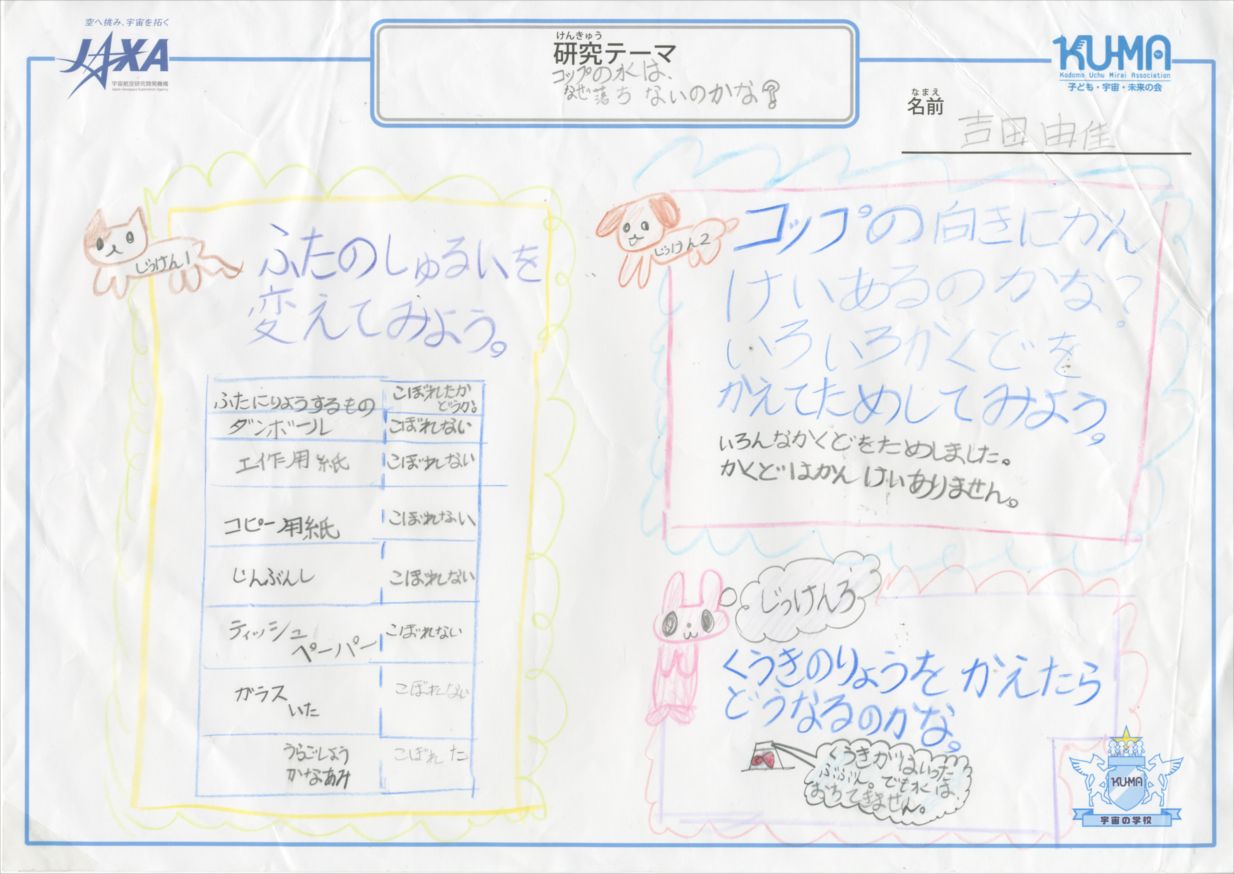 空へ挑み、宇宙を拓く
JAXA
宇宙航空研究開発機構
Japan Aerospace Exploration Agency
けんきゅう
研究テーマ
コップの水は、
なぜ落ちないのかな?
KU-MA
Kodomo Uchu Mirai Association
子ども・宇宙・未来の会
なまえ
名前
吉田由佳
じっけん1
ふたのしゅるいを
変えてみよう。
ふたにりようするもの
こぼれたか
どうか。
ダンボール
こぼれない
工作用紙
こぼれない
コピー用紙
こぼれない
しんぶんし
こぼれない
ティッシュ
ペーパー
こぼれない
ガラス
いた
こぼれない
うらごしよう
かなあみ
こぼれた
じっけん2
コップの向きにかん
けいあるのかな?
いろいろかくどを
かえてためしてみよう。
いろんなかくどをためしました。
かくどはかんけいありません。
じっけん3
くうきのりょうをかえたら
どうなるのかな。
くうきがはいった
ぶぶん。でも水は
おちてきません。
KU-MA
宇宙の学校